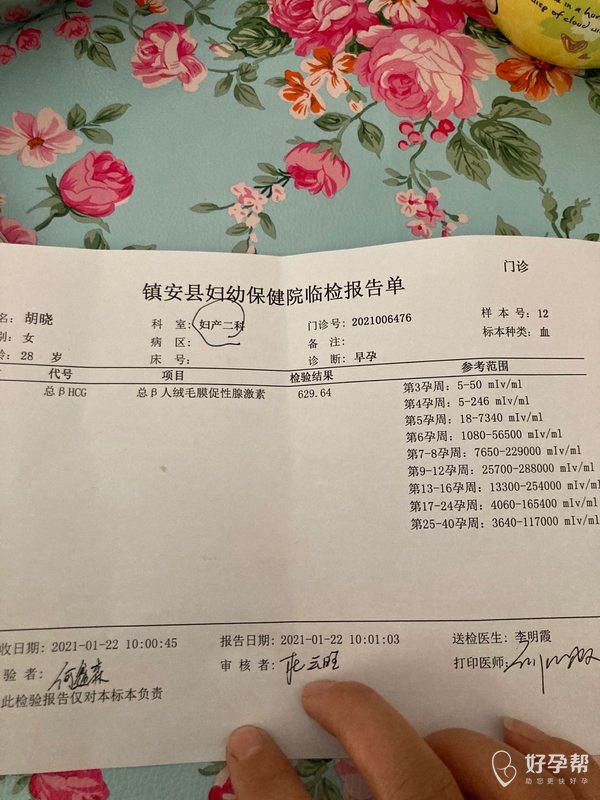 in a h
disp of cloud
门诊
镇安县妇幼保健院临检报告单
名: 胡晓 科 室: 妇产二科 门诊号: 2021006476 样 本 号: 12
别: 女 病 区: 备 注: 标本种类: 血
龄: 28 岁 床 号: 诊 断: 早孕
代号 项目 检验结果 参考范围
总βHCG 总β人绒毛膜促性腺激素 629.64 第3孕周: 5-50 mIv/ml
第4孕周: 5-246 mIv/ml
第5孕周: 18-7340 mIv/ml
第6孕周: 1080-56500 mIv/ml
第7-8孕周: 7650-229000 mIv/ml
第9-12孕周: 25700-288000 mIv/ml
第13-16孕周: 13300-254000 mIv/ml
第17-24孕周: 4060-165400 mIv/ml
第25-40孕周: 3640-117000 mIv/ml
收日期: 2021-01-22 10:00:45 报告日期: 2021-01-22 10:01:03 送检医生: 李明霞
验者: 何鑫森 审核者: 打印医师:
此检验报告仅对本标本负责
好孕帮
助您更快好孕